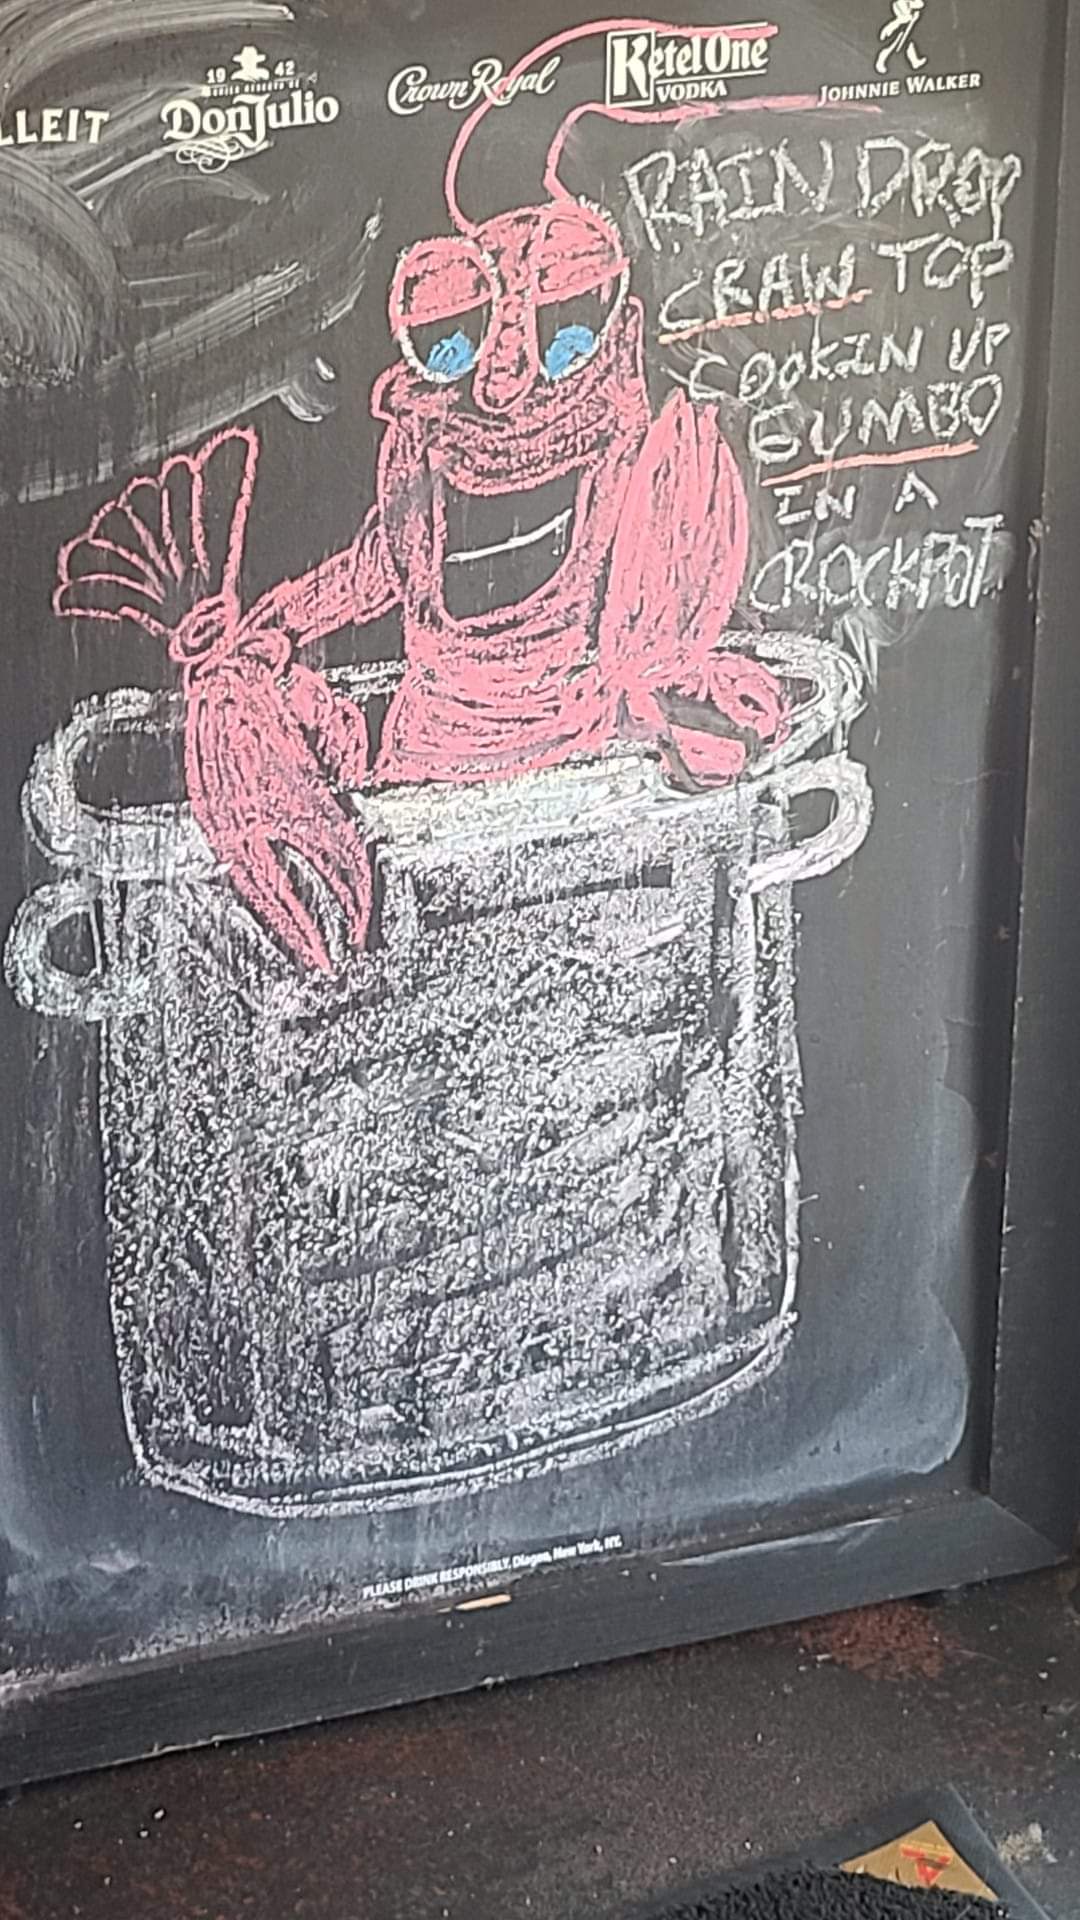 LLEIT
19 42
Don Julio
Crown Royal
Ketel One
VODKA
JOHNNIE WALKER
RAIN DROP
CRAW TOP
COOKIN UP
GUMBO
IN A
CROCKPOT
PLEASE DRINK RESPONSIBLY. Diageo, New York, NY.